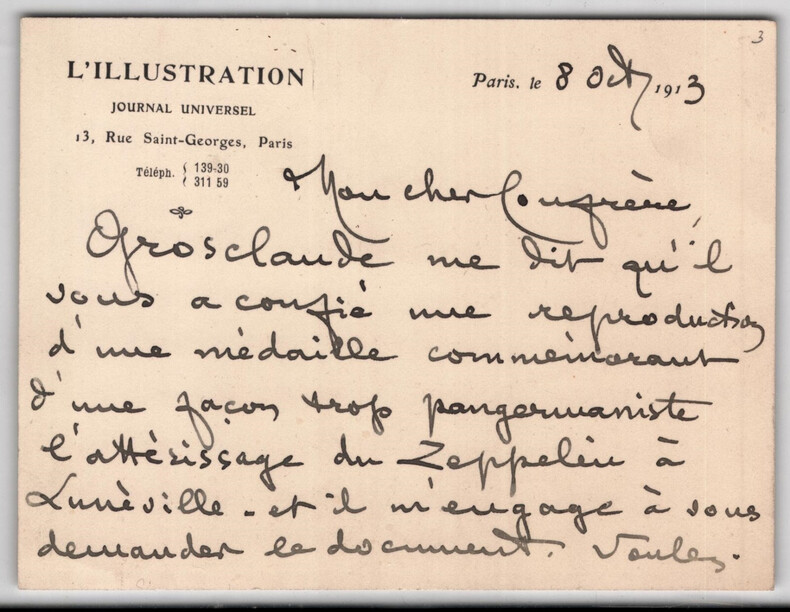 3
L'ILLUSTRATION
JOURNAL UNIVERSEL
13, Rue Saint-Georges, Paris
Téléph. { 139-30
311 59
Paris. le 8 Oct 1913
Mon cher Confrère,
Grosclaude me dit qu'il
vous a confié une reproduction
d'une médaille commémorant
d'une façon trop pangermaniste
l'attérissage du Zeppelin à
Lunéville - et il m'engage à vous
demander le document. Voulez-